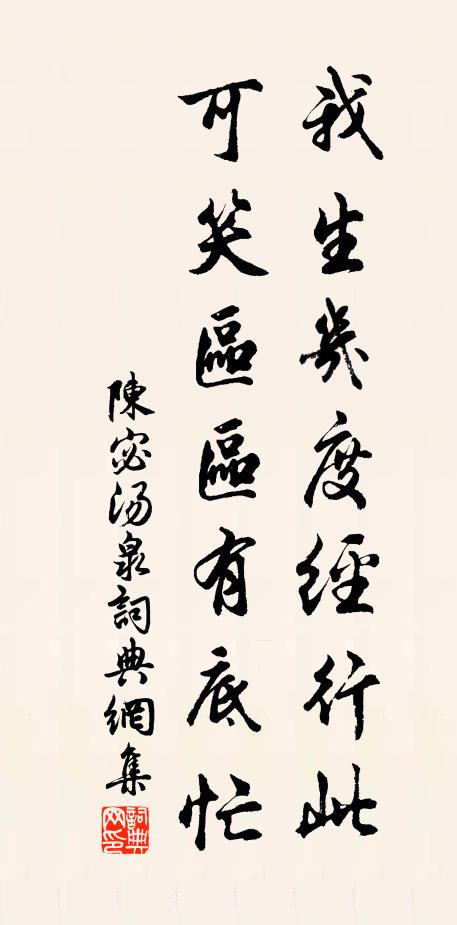 我生幾度經行此
可笑區區有底忙
陳宓汤泉詞典網集
詞典网印